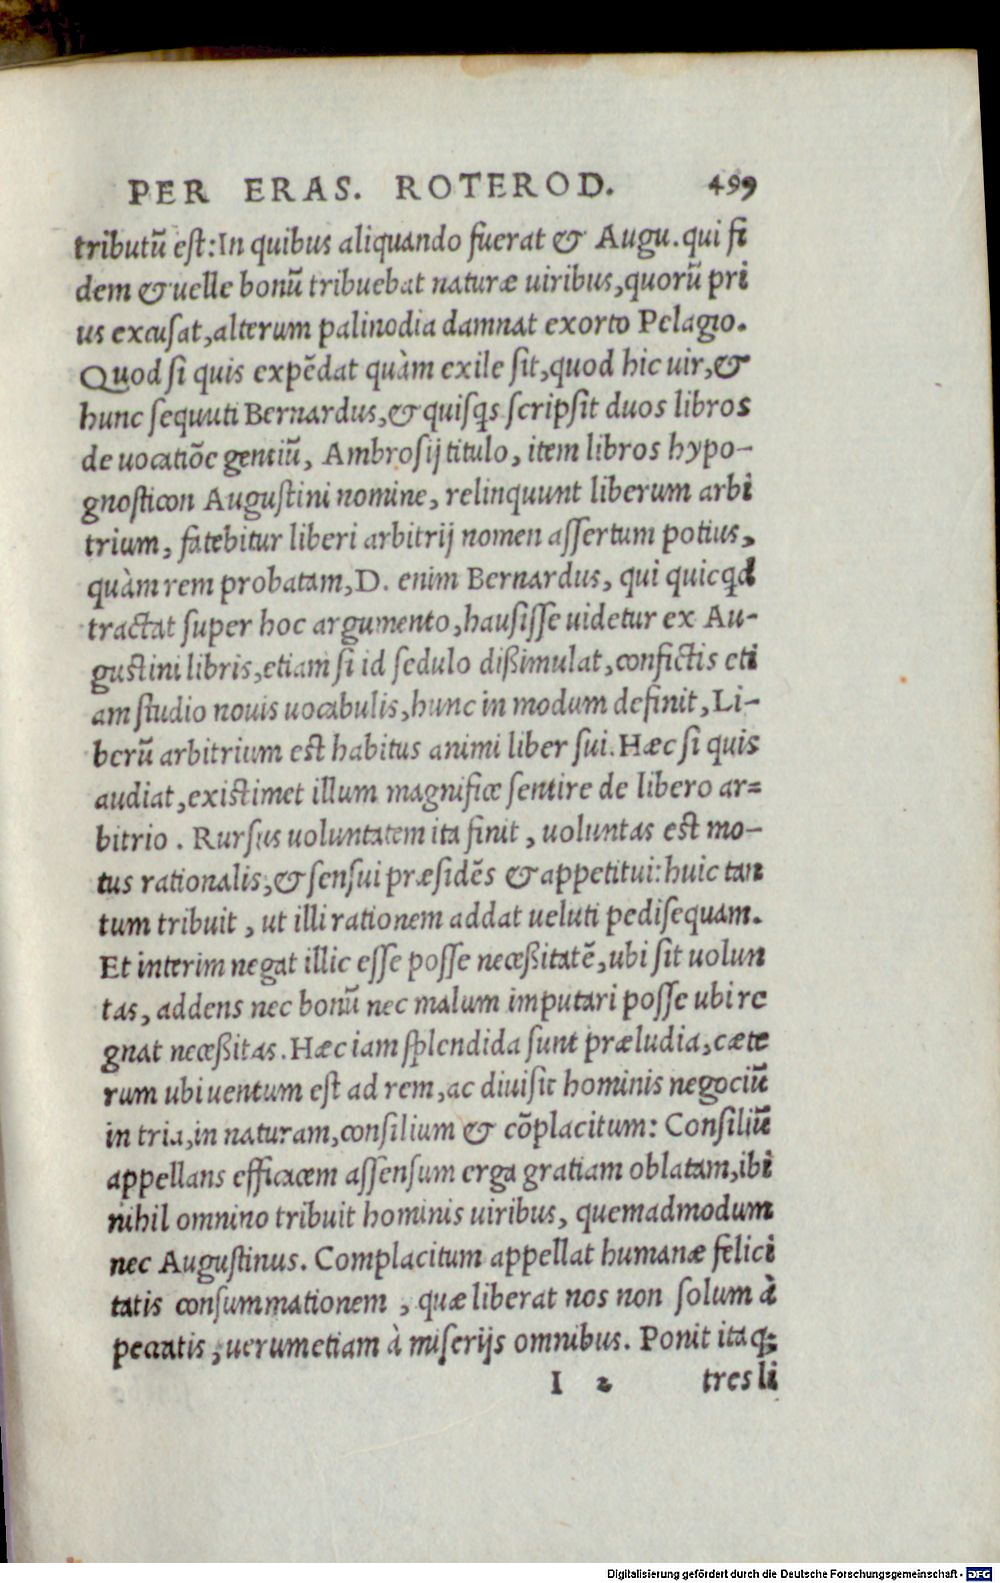 PER ERAS. ROTEROD. 499
tributū est:In quibus aliquando fuerat & Augu.qui fi
dem & uelle bonū tribuebat naturæ uiribus,quorū pri
us excusat,alterum palinodia damnat exorto Pelagio.
Quod si quis expēdat quàm exile sit,quod hic uir,&
hunc sequuti Bernardus,& quisq́s scripsit duos libros
de uocatiõe gentiū, Ambrosij titulo, item libros hypo-
gnosticon Augustini nomine, relinquunt liberum arbi
trium, fatebitur liberi arbitrij nomen assertum potius,
quàm rem probatam,D. enim Bernardus, qui quicqd
tractat super hoc argumento,hausisse uidetur ex Au-
gustini libris,etiam si id sedulo dißimulat,confictis eti
am studio nouis uocabulis,hunc in modum definit,Li-
berū arbitrium est habitus animi liber sui.Hæc si quis
audiat,existimet illum magnifice sentire de libero ar=
bitrio. Rursus uoluntatem ita finit, uoluntas est mo-
tus rationalis,& sensui præsidēs & appetitui:huic tan
tum tribuit, ut illi rationem addat ueluti pedisequam.
Et interim negat illic esse posse neceßitatē,ubi sit uolun
tas, addens nec bonū nec malum imputari posse ubi re
gnat neceßitas.Hæc iam splendida sunt præludia,cæte
rum ubi uentum est ad rem,ac diuisit hominis negociū
in tria,in naturam,consilium & cõplacitum: Consiliū
appellans efficacem assensum erga gratiam oblatam,ibi
nihil omnino tribuit hominis uiribus, quemadmodum
nec Augustinus. Complacitum appellat humanæ felici
tatis consummationem, quæ liberat nos non solum à
peccatis, uerumetiam à miserijs omnibus. Ponit itaq;
I 2 tres li
Digitalisierung gefördert durch die Deutsche Forschungsgemeinschaft - DFG